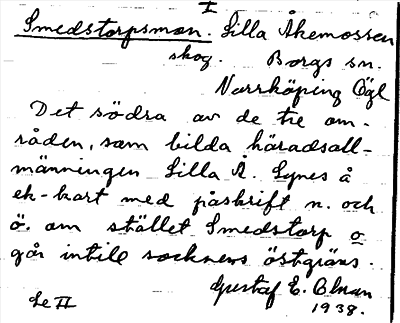 I
Smedstorpsmon. Lilla Åkemossen
skog. Borgs sn.
Norrköping Ögl
Det södra av de tre om-
råden, som bilda häradsall-
männingen Lilla Å. Synes å
ek-kart med påskrift n. och
ö. om stället Smedstorp o
går intill socknens östgräns.
Gustaf E. Olman
1938.
Le II